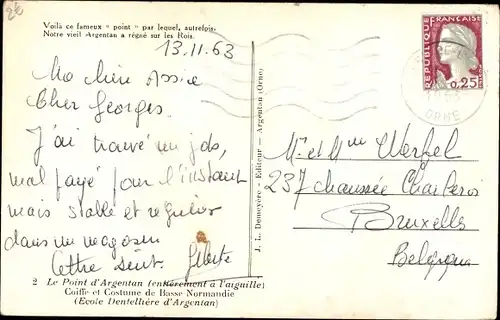 2E
Voilà ce fameux " point " par lequel, autrefois,
Notre vieil Argentan a régné sur les Rois.
13.11.63
Cher Georges.
J'ai trouvé un job,
mal payé pour l'instant
mais stable et régulier
dans un magasin
Lettre suit.
2 Le Point d'Argentan (entièrement à l'aiguille)
Coiffe et Costume de Basse Normandie
(Ecole Dentellière d'Argentan)
J. L. Demeyère - Editeur - Argentan (Orne)
REPUBLIQUE FRANÇAISE
0,25
ORNE
M et Mme Werfel
237 chaussée Charleroi
Bruxelles
Belgique